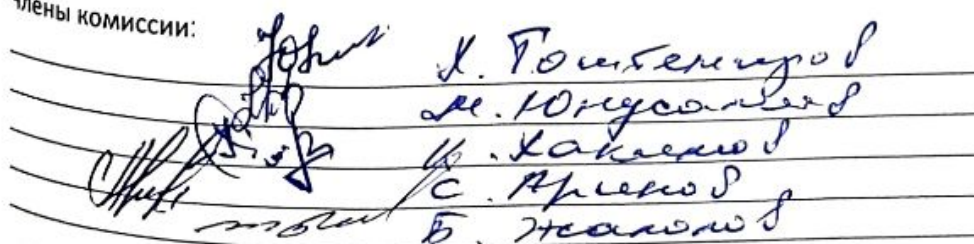 члены комиссии:
Х. Тоштемиров
М. Юнусалиев
И. Хакимов
С. Арипов
Б. Жалолов